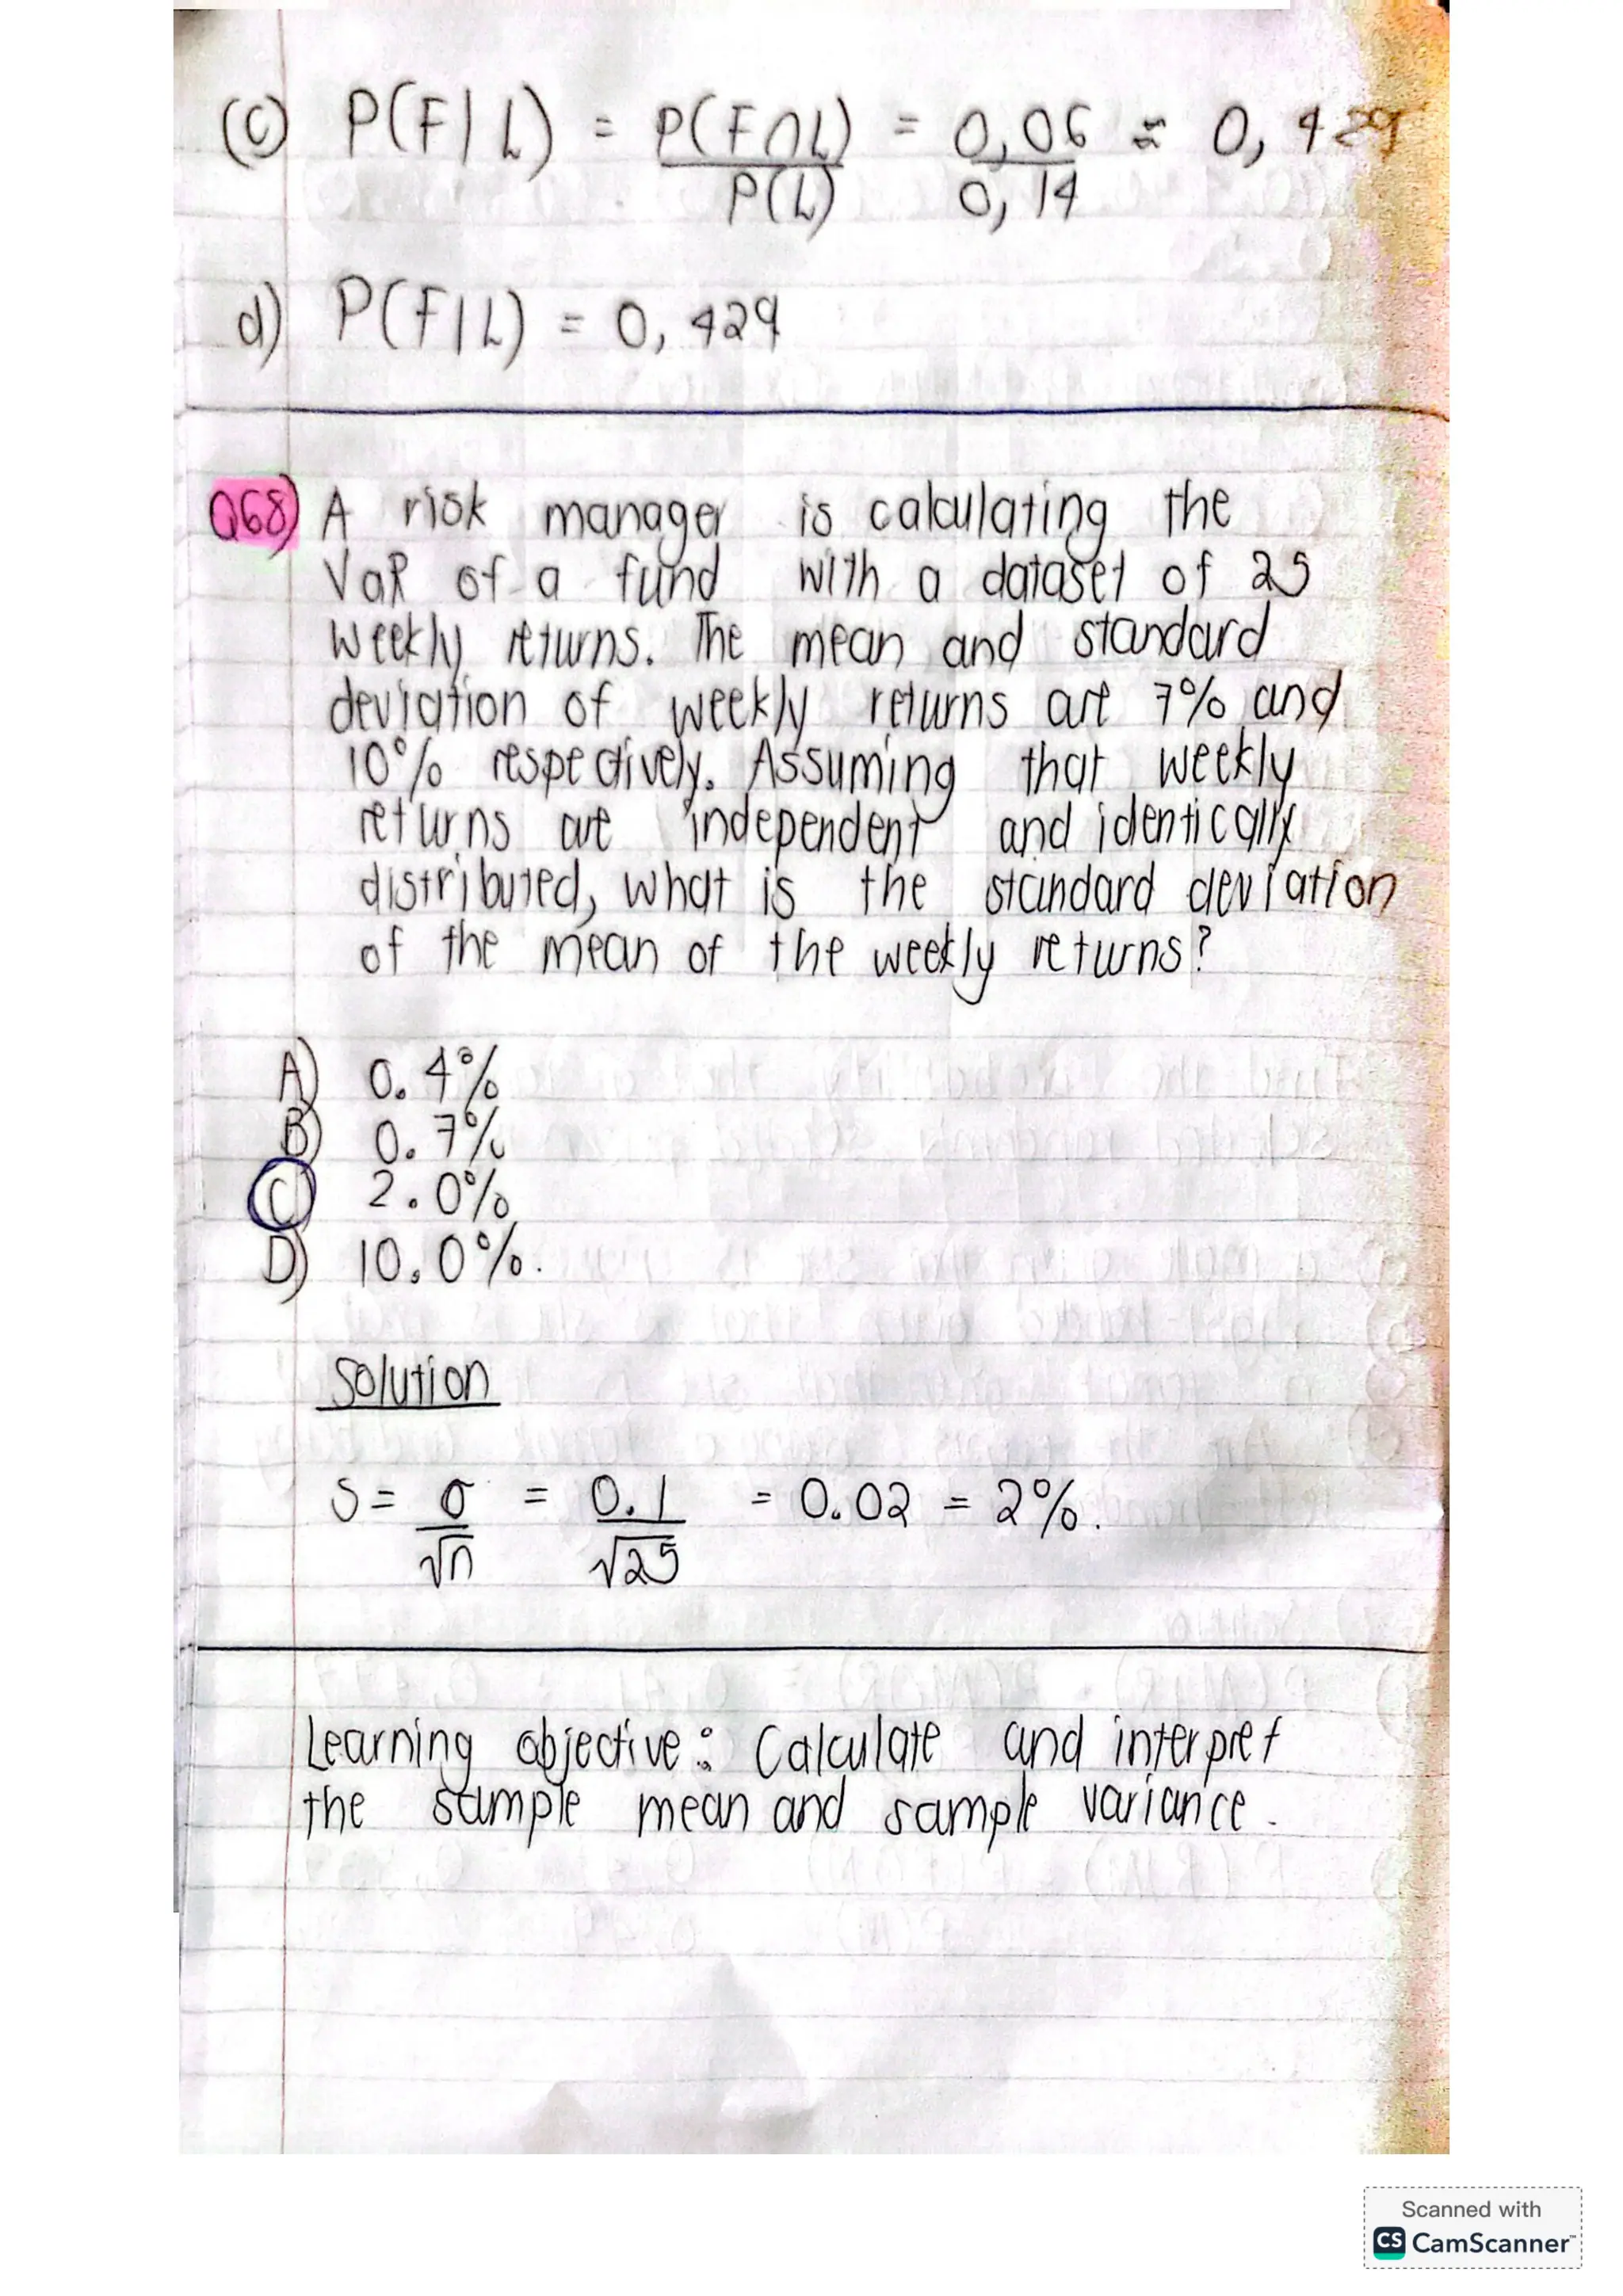 (c) P(F|L) = P(F∩L) / P(L) = 0,06 / 0,14 ≈ 0,429
d) P(F|L) = 0,429
Q68) A risk manager is calculating the
VaR of a fund with a dataset of 25
weekly returns. The mean and standard
deviation of weekly returns are 7% and
10% respectively. Assuming that weekly
returns are independent and identically
distributed, what is the standard deviation
of the mean of the weekly returns?
A) 0.4%
B) 0.7%
C) 2.0%
D) 10.0%.
Solution
S = σ / √n = 0.1 / √25 = 0.02 = 2%.
Learning objective: Calculate and interpret
the sample mean and sample variance.
Scanned with
CS CamScanner™